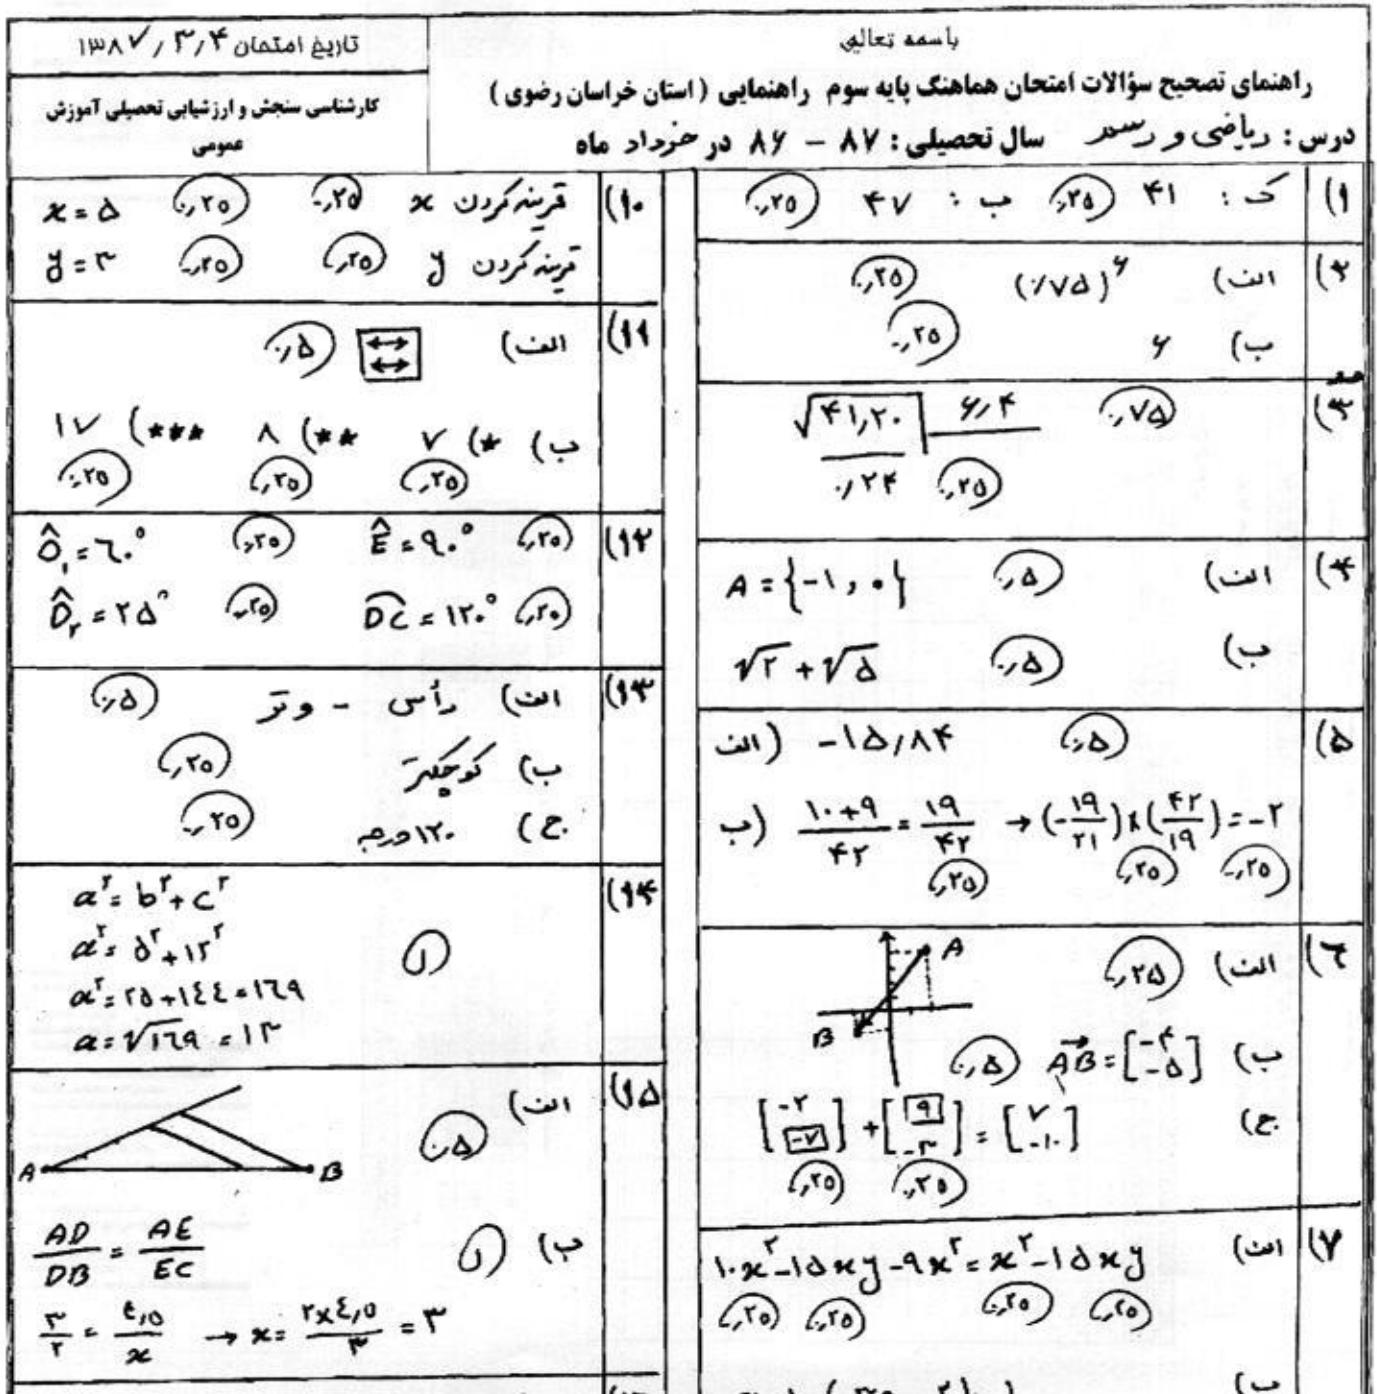 باسمه تعالی
راهنمای تصحیح سؤالات امتحان هماهنگ پایه سوم راهنمایی ( استان خراسان رضوی )
درس : ریاضی و رسم سال تحصیلی : ۸۷ – ۸۶ در خرداد ماه
تاریخ امتحان ۱۳۸۷/۳/۴
کارشناسی سنجش و ارزشیابی تحصیلی آموزش
عمومی
۱) ک : ۴۱ ۰/۲۵ ب : ۴۷ ۰/۲۵
۲) الف) (۰/۷۵)^۶ ۰/۲۵
ب) ۶ ۰/۲۵
۳) √۴۱/۲۰ ۶/۴ ۰/۷۵
۰/۲۴ ۰/۲۵
۴) الف) A = {-۱, ۰} ۰/۵
ب) √۲ + √۵ ۰/۵
۵) الف) -۱۵/۸۴ ۰/۵
ب) (۱۰+۹)/۴۲ = ۱۹/۴۲ → (-۱۹/۲۱)×(۴۲/۱۹) = -۲
۰/۲۵ ۰/۲۵ ۰/۲۵
۶) الف) ۰/۲۵ A B
ب) AB = [-۴ -۵] ۰/۵
ج) [-۲ -۷] + [۹ -۳] = [۷ -۱۰]
۰/۲۵ ۰/۲۵
۷) الف) ۱۰x^۲ - ۱۵xy - ۹x^۲ = x^۲ - ۱۵xy
۰/۲۵ ۰/۲۵ ۰/۲۵ ۰/۲۵
ب)
۱۰) قرینه کردن x ۰/۲۵ ۰/۲۵ x = ۵
قرینه کردن y ۰/۲۵ ۰/۲۵ y = ۳
۱۱) الف) ↔ ↔ ۰/۵
ب) *) ۷ **) ۸ ***) ۱۷
۰/۲۵ ۰/۲۵ ۰/۲۵
۱۲) Ô₁ = ٦۰° ۰/۲۵ Ê = ۹۰° ۰/۲۵
D̂₂ = ۲۵° ۰/۲۵ DC = ۱۲۰° ۰/۲۵
۱۳) الف) رأس - وتر ۰/۵
ب) کوچکتر ۰/۲۵
ج) ۱۲۰ درجه ۰/۲۵
۱۴) a^۲ = b^۲ + c^۲
a^۲ = ۵^۲ + ۱۲^۲ ۱
a^۲ = ۲۵ + ۱٤٤ = ۱٦۹
a = √۱٦۹ = ۱۳
۱۵) الف) ۰/۵
A B
ب) ۱ AD/DB = AE/EC
۳/۲ = ٤/۵/x → x = (۲×٤/۵)/۳ = ۳